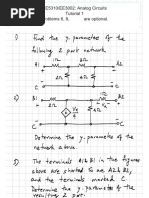 EE5310/EE3002: Analog Circuits
Tutorial 1
Problems 8, 9, are optional.
1) Find the y-parameter of the
following 2 port network.
A1 1Ω 2Ω A2
2Ω 4Ω
C C
2)
B1 B2
4Ω
C C
Determine the y-parameter of the
network above.
3) The terminals A1 & B1 in the figures
above are shorted. So are A2 & B2,
and the terminals marked C.
Determine the y-parameter of the
resulting 2 port.